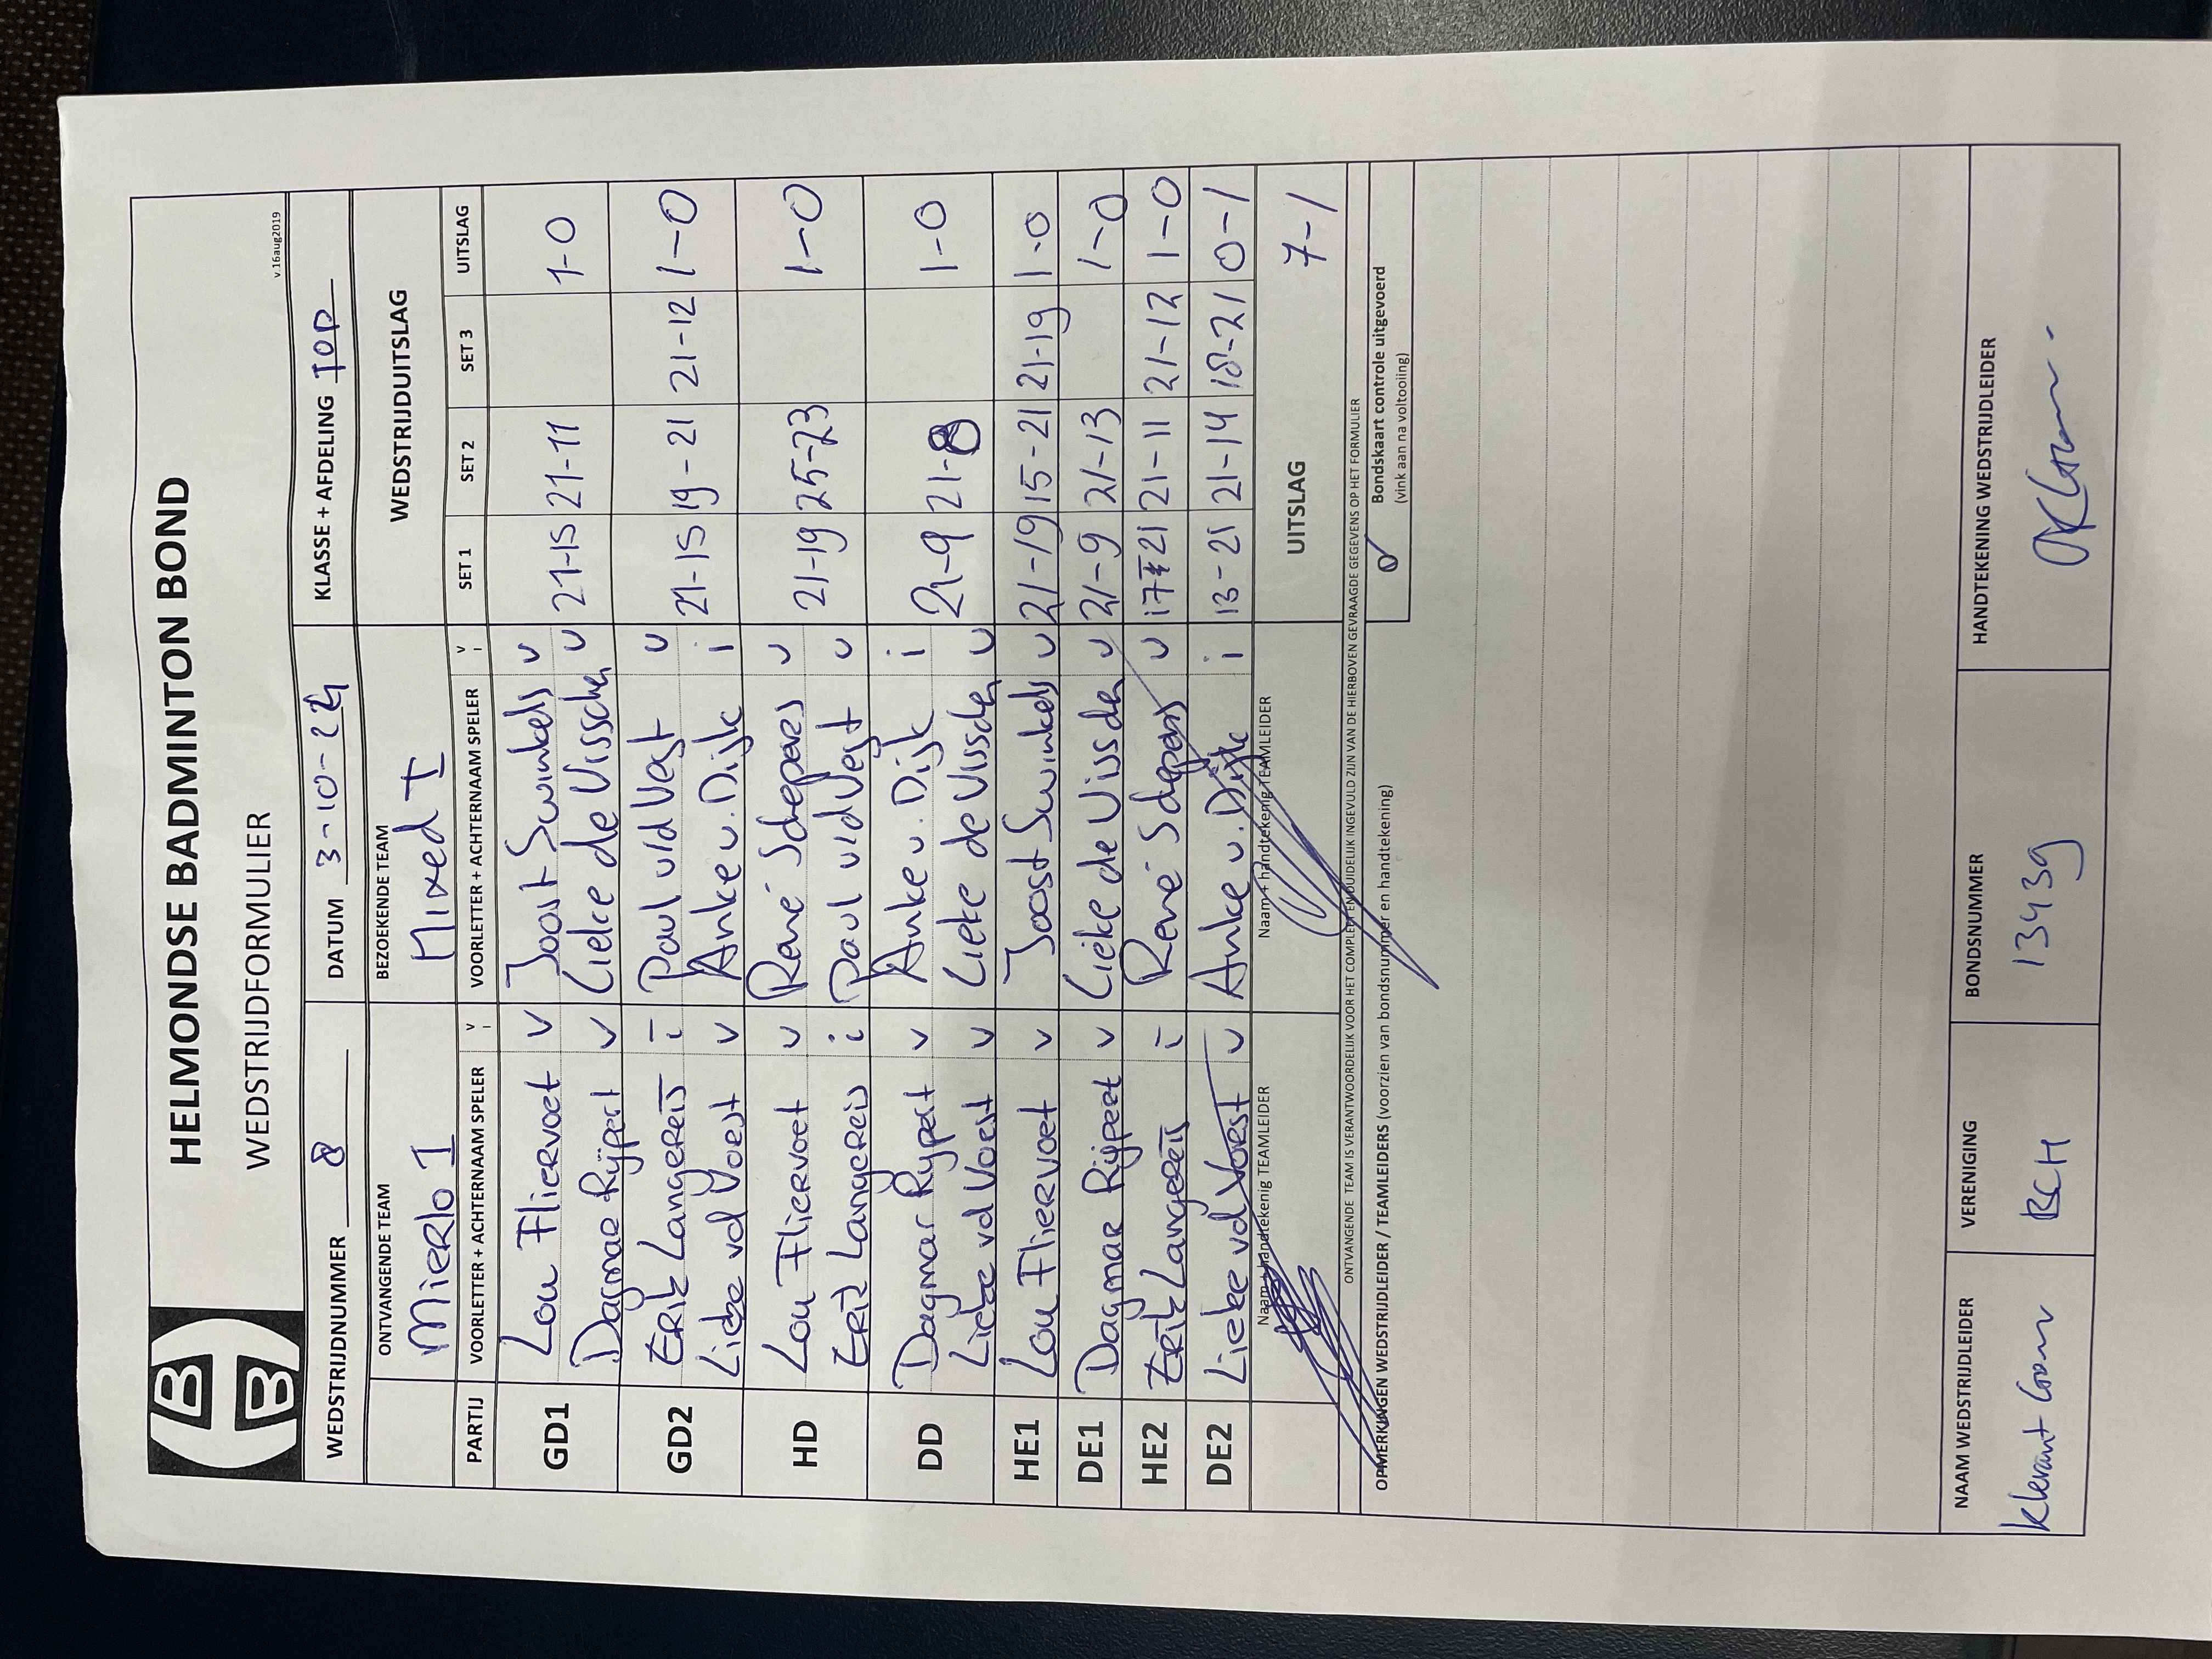 HELMONDSE BADMINTON BOND
WEDSTRIJDFORMULIER
v.16aug2019
WEDSTRIJDNUMMER 8 DATUM 3-10-24 KLASSE + AFDELING TOP
ONTVANGENDE TEAM BEZOEKENDE TEAM WEDSTRIJDUITSLAG
Mierlo 1 Mixed I
PARTIJ VOORLETTER + ACHTERNAAM SPELER V I VOORLETTER + ACHTERNAAM SPELER V I SET 1 SET 2 SET 3 UITSLAG
GD1 Lou Fliervoet v Joost Swinkels v 21-15 21-11 1-0
Dagmar Rijpert v Lieke de Visscher v
GD2 Erik Langereis i Paul vld Vegt v 21-15 19-21 21-12 1-0
Lieke vd Voest v Anke v. Dijk i
HD Lou Fliervoet v René Schepers v 21-19 25-23 1-0
Erik Langereis i Paul vld Vegt v
DD Dagmar Rijpert v Anke v. Dijk i 21-9 21-8 1-0
Lieke vd Voest v Lieke de Visscher v
HE1 Lou Fliervoet v Joost Swinkels v 21-19 15-21 21-19 1-0
DE1 Dagmar Rijpert v Lieke de Visscher v 21-9 21-13 1-0
HE2 Erik Langereis i René Schepers v 17-21 21-11 21-12 1-0
DE2 Lieke vd Voest v Anke v. Dijk i 13-21 21-14 18-21 0-1
Naam + handtekenig TEAMLEIDER Naam + handtekenig TEAMLEIDER UITSLAG 7-1
ONTVANGENDE TEAM IS VERANTWOORDELIJK VOOR HET COMPLEET EN DUIDELIJK INGEVULD ZIJN VAN DE HIERBOVEN GEVRAAGDE GEGEVENS OP HET FORMULIER
OPMERKINGEN WEDSTRIJDLEIDER / TEAMLEIDERS (voorzien van bondsnummer en handtekening)
Bondskaart controle uitgevoerd
(vink aan na voltooiing)
NAAM WEDSTRIJDLEIDER VERENIGING BONDSNUMMER HANDTEKENING WEDSTRIJDLEIDER
BCH 13439